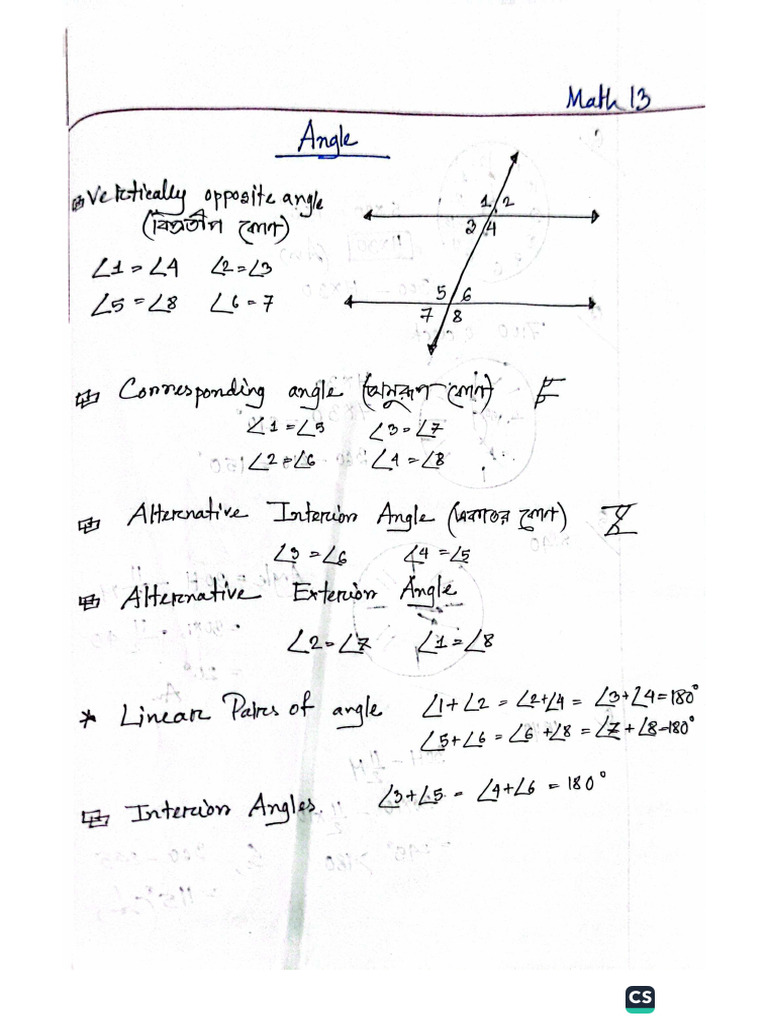 Math 13
Angle
Vertically opposite angle
(বিপ্রতীপ কোণ)
∠1 = ∠4 ∠2 = ∠3
∠5 = ∠8 ∠6 = 7
1 2
3 4
5 6
7 8
Corresponding angle (অনুরূপ কোণ) F
∠1 = ∠5 ∠3 = ∠7
∠2 = ∠6 ∠4 = ∠8
Alternative Interior Angle (একান্তর কোণ) Z
∠3 = ∠6 ∠4 = ∠5
Alternative Exterior Angle
∠2 = ∠7 ∠1 = ∠8
* Linear Paires of angle ∠1 + ∠2 = ∠2+∠4 = ∠3+∠4 = 180°
∠5+∠6 = ∠6 + ∠8 = ∠7 + ∠8 = 180°
Interior Angles. ∠3+∠5 = ∠4+∠6 = 180°
CS